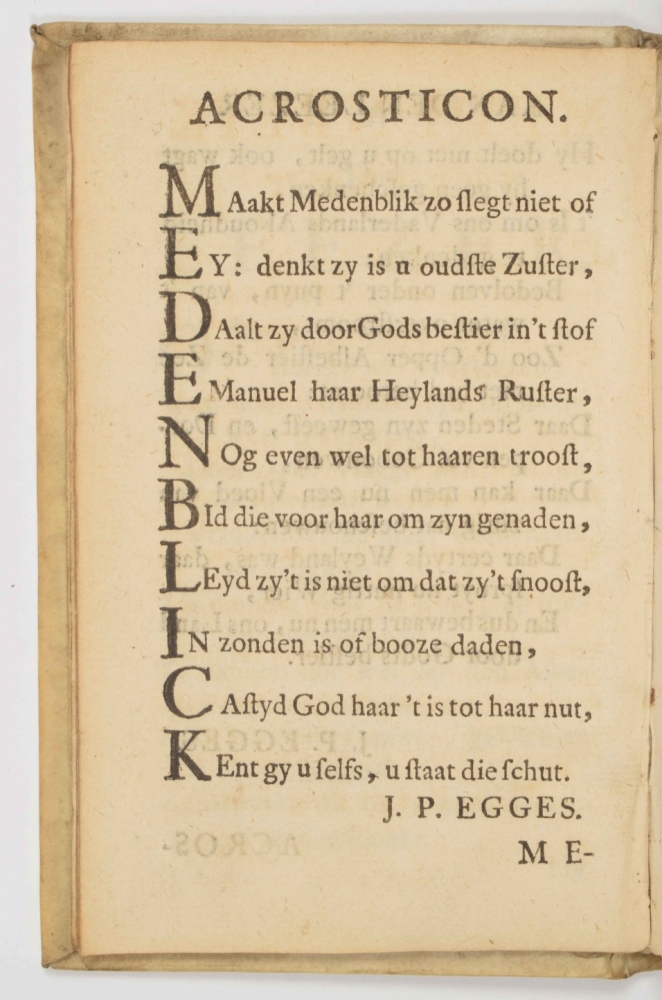 ACROSTICON.
MAakt Medenblik zo ſlegt niet of
EY: denkt zy is u oudſte Zuſter,
DAalt zy door Gods beſtier in't ſtof
EManuel haar Heylands Ruſter,
NOg even wel tot haaren trooſt,
BId die voor haar om zyn genaden,
LEyd zy't is niet om dat zy't ſnooſt,
IN zonden is of booze daden,
CAſtyd God haar 't is tot haar nut,
KEnt gy u ſelfs, u ſtaat die ſchut.
J. P. EGGES.
M E-